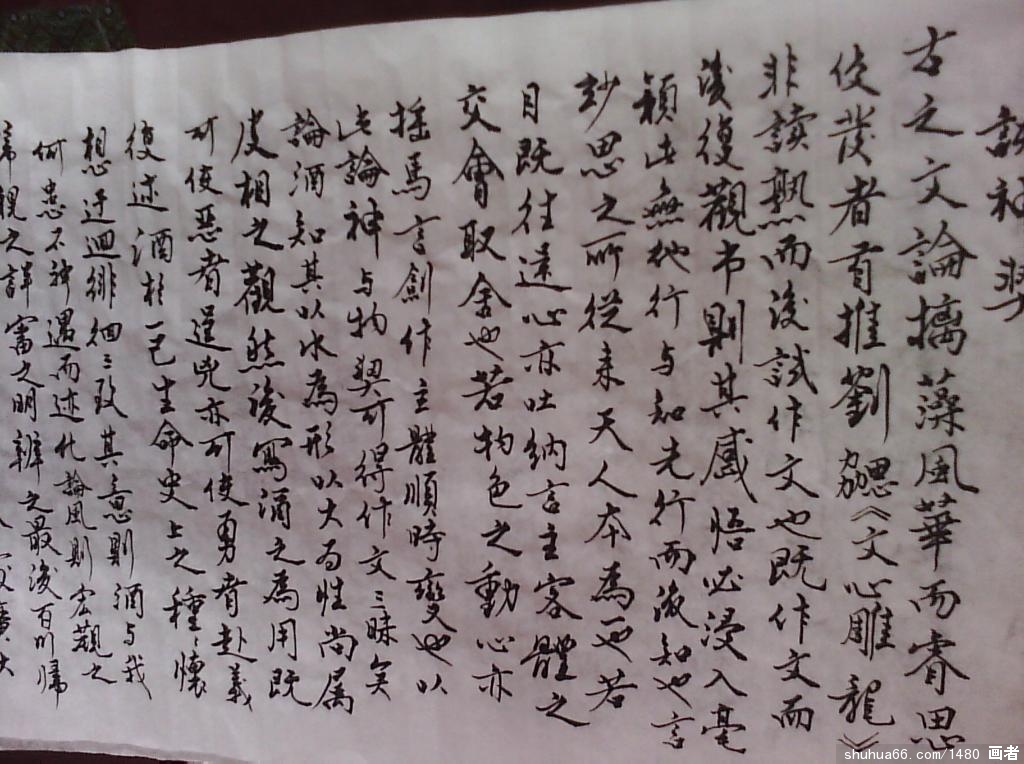 說神契
古之文論摛藻風華而睿思
俊發者首推劉勰《文心雕龍》
非讀熟而後試作文也既作文而
後復觀書則其感悟必浸入毫
穎此無他行与知先行而後知也言
妙思之所從来天人本為一若
目既往還心亦吐納言主客體之
交會取舍也若物色之動心亦
搖焉言創作主體順時變也以
此論神与物契可得作文三昧矣
論酒知其以水為形以火為性尚属
皮相之觀然後寫酒之為用既
可使惡者逞兇亦可使勇者赴義
復述酒於一己生命史上之種種懷
想迂迴徘徊三致其意則酒与我
何患不神遇而迹化論風則宏觀之
諦視之詳審之明辨之最後百川歸